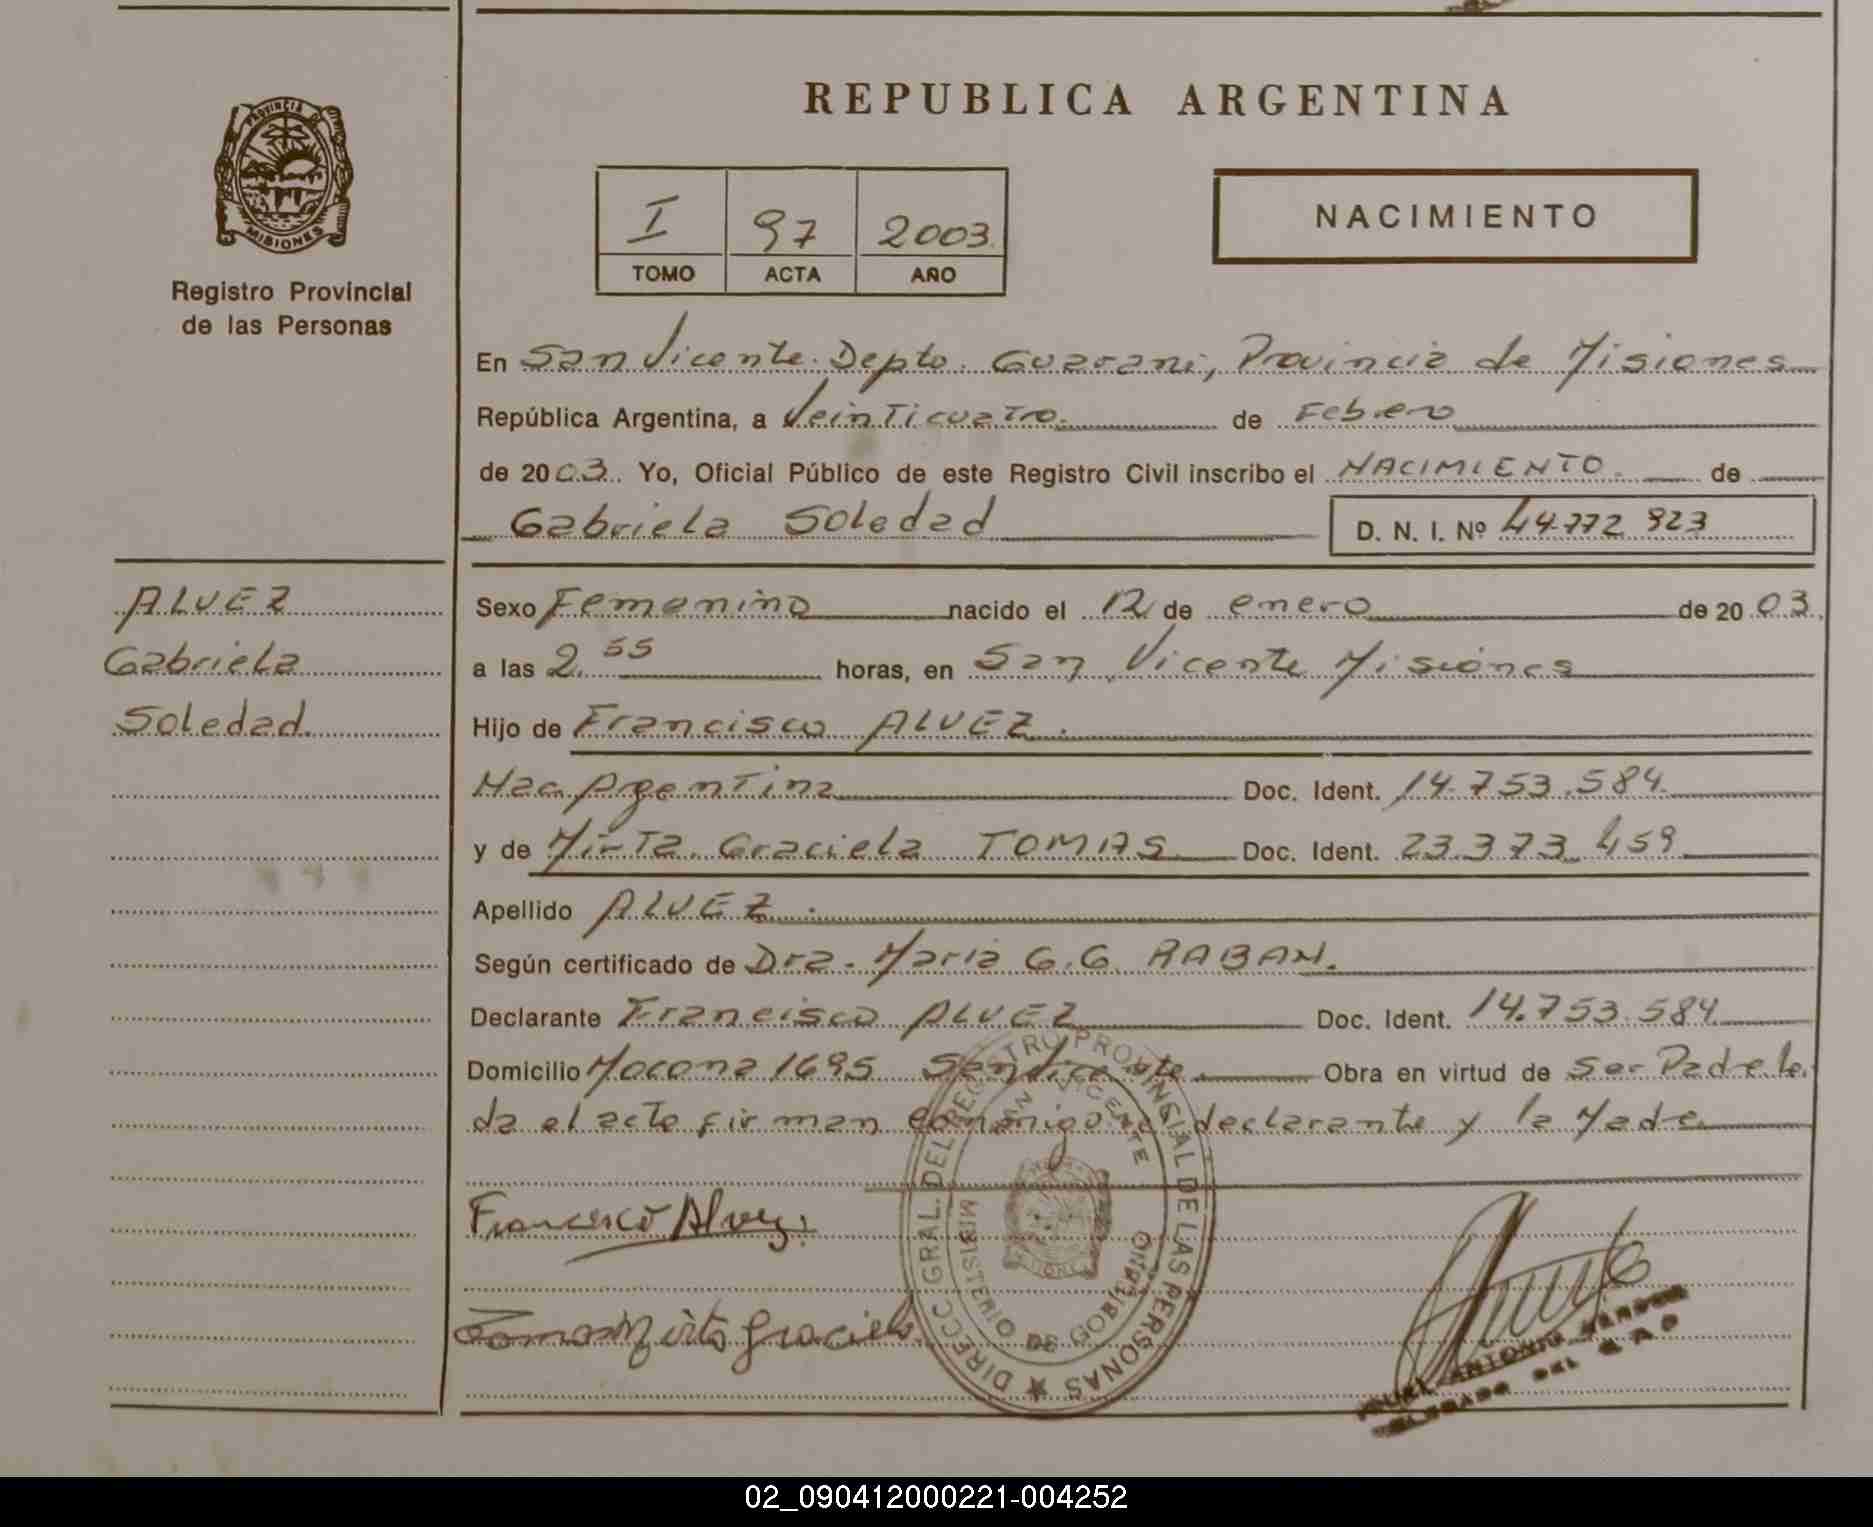 PROVINCIA DE
MISIONES
Registro Provincial
de las Personas
REPUBLICA ARGENTINA
I 97 2003
TOMO ACTA AÑO
NACIMIENTO
En San Vicente. Depto. Guarani, Provincia de Misiones
República Argentina, a Veinticuatro. de Febrero
de 2003. Yo, Oficial Público de este Registro Civil inscribo el NACIMIENTO. de
Gabriela Soledad D. N. I. Nº 44.772 923
ALVEZ
Gabriela
Soledad.
Sexo Femenino nacido el 12 de enero de 20 03
a las 2. 55 horas, en San Vicente Misiones
Hijo de Francisco ALVEZ.
Nac Argentina Doc. Ident. 14.753.584.
y de Mirta Graciela TOMAS Doc. Ident. 23.373 459
Apellido ALVEZ.
Según certificado de Dra. Maria G.G. RABAN.
Declarante Francisco ALVEZ Doc. Ident. 14.753.584
Domicilio Mocona 1695 San Vicente. Obra en virtud de Ser Padre le
da el acto firman conmigo el declarante y la Madre
Francisco Alvez.
Tomas Mirta Graciela.
DIRECC. GRAL. DEL REGISTRO PROVINCIAL DE LAS PERSONAS
SAN VICENTE
MINISTERIO DE GOBIERNO
ANTONIO
DEL
02_090412000221-004252